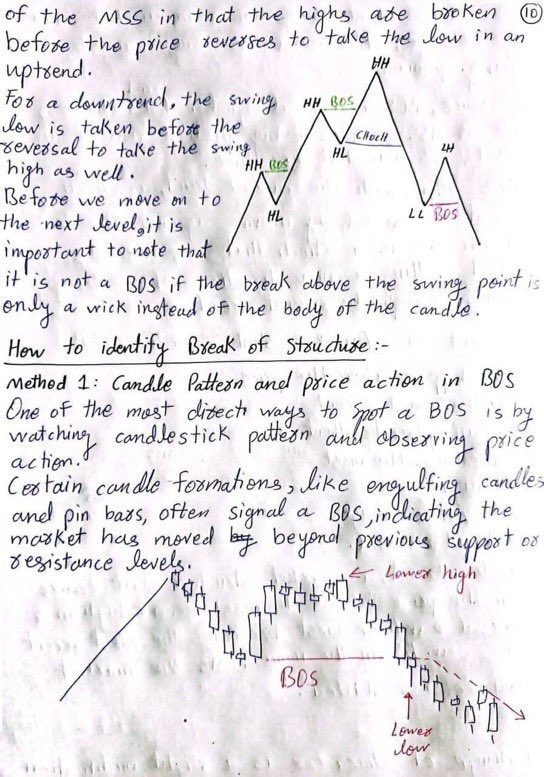 of the MSS in that the highs are broken
10
before the price reverses to take the low in an
uptrend.
For a downtrend, the swing
low is taken before the
reversal to take the swing
high as well.
Before we move on to
the next level, it is
important to note that
HH
HH BOS
CHOCH
HL
HH BOS
HL
LH
LL
BOS
it is not a BOS if the break above the swing point is
only a wick instead of the body of the candle.
How to identify Break of Structure:-
Method 1: Candle Pattern and price action in BOS
One of the most direct ways to spot a BOS is by
watching candlestick pattern and observing price
action.
Certain candle formations, like engulfing candles
and pin bars, often signal a BOS, indicating the
market has moved beyond previous support or
resistance levels.
Lower high
BOS
Lower
low